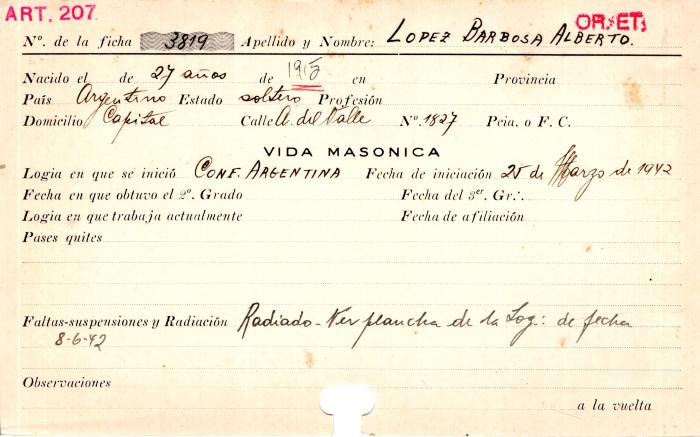 ART. 207
OR∴ ET∴
Nº. de la ficha 3819 Apellido y Nombre: LOPEZ BARBOSA ALBERTO.
Nacido el de 27 años de 1915 en Provincia
País Argentino Estado soltero Profesión
Domicilio Capital Calle A. del Valle Nº. 1827 Pcia. o F. C.
VIDA MASONICA
Logia en que se inició CONF. ARGENTINA Fecha de iniciación 25 de Marzo de 1942
Fecha en que obtuvo el 2º. Grado Fecha del 3er. Gr∴
Logia en que trabaja actualmente Fecha de afiliación
Pases quites
Faltas-suspensiones y Radiación Radiado - Ver plancha de la Log∴ de fecha
8-6-42
Observaciones
a la vuelta